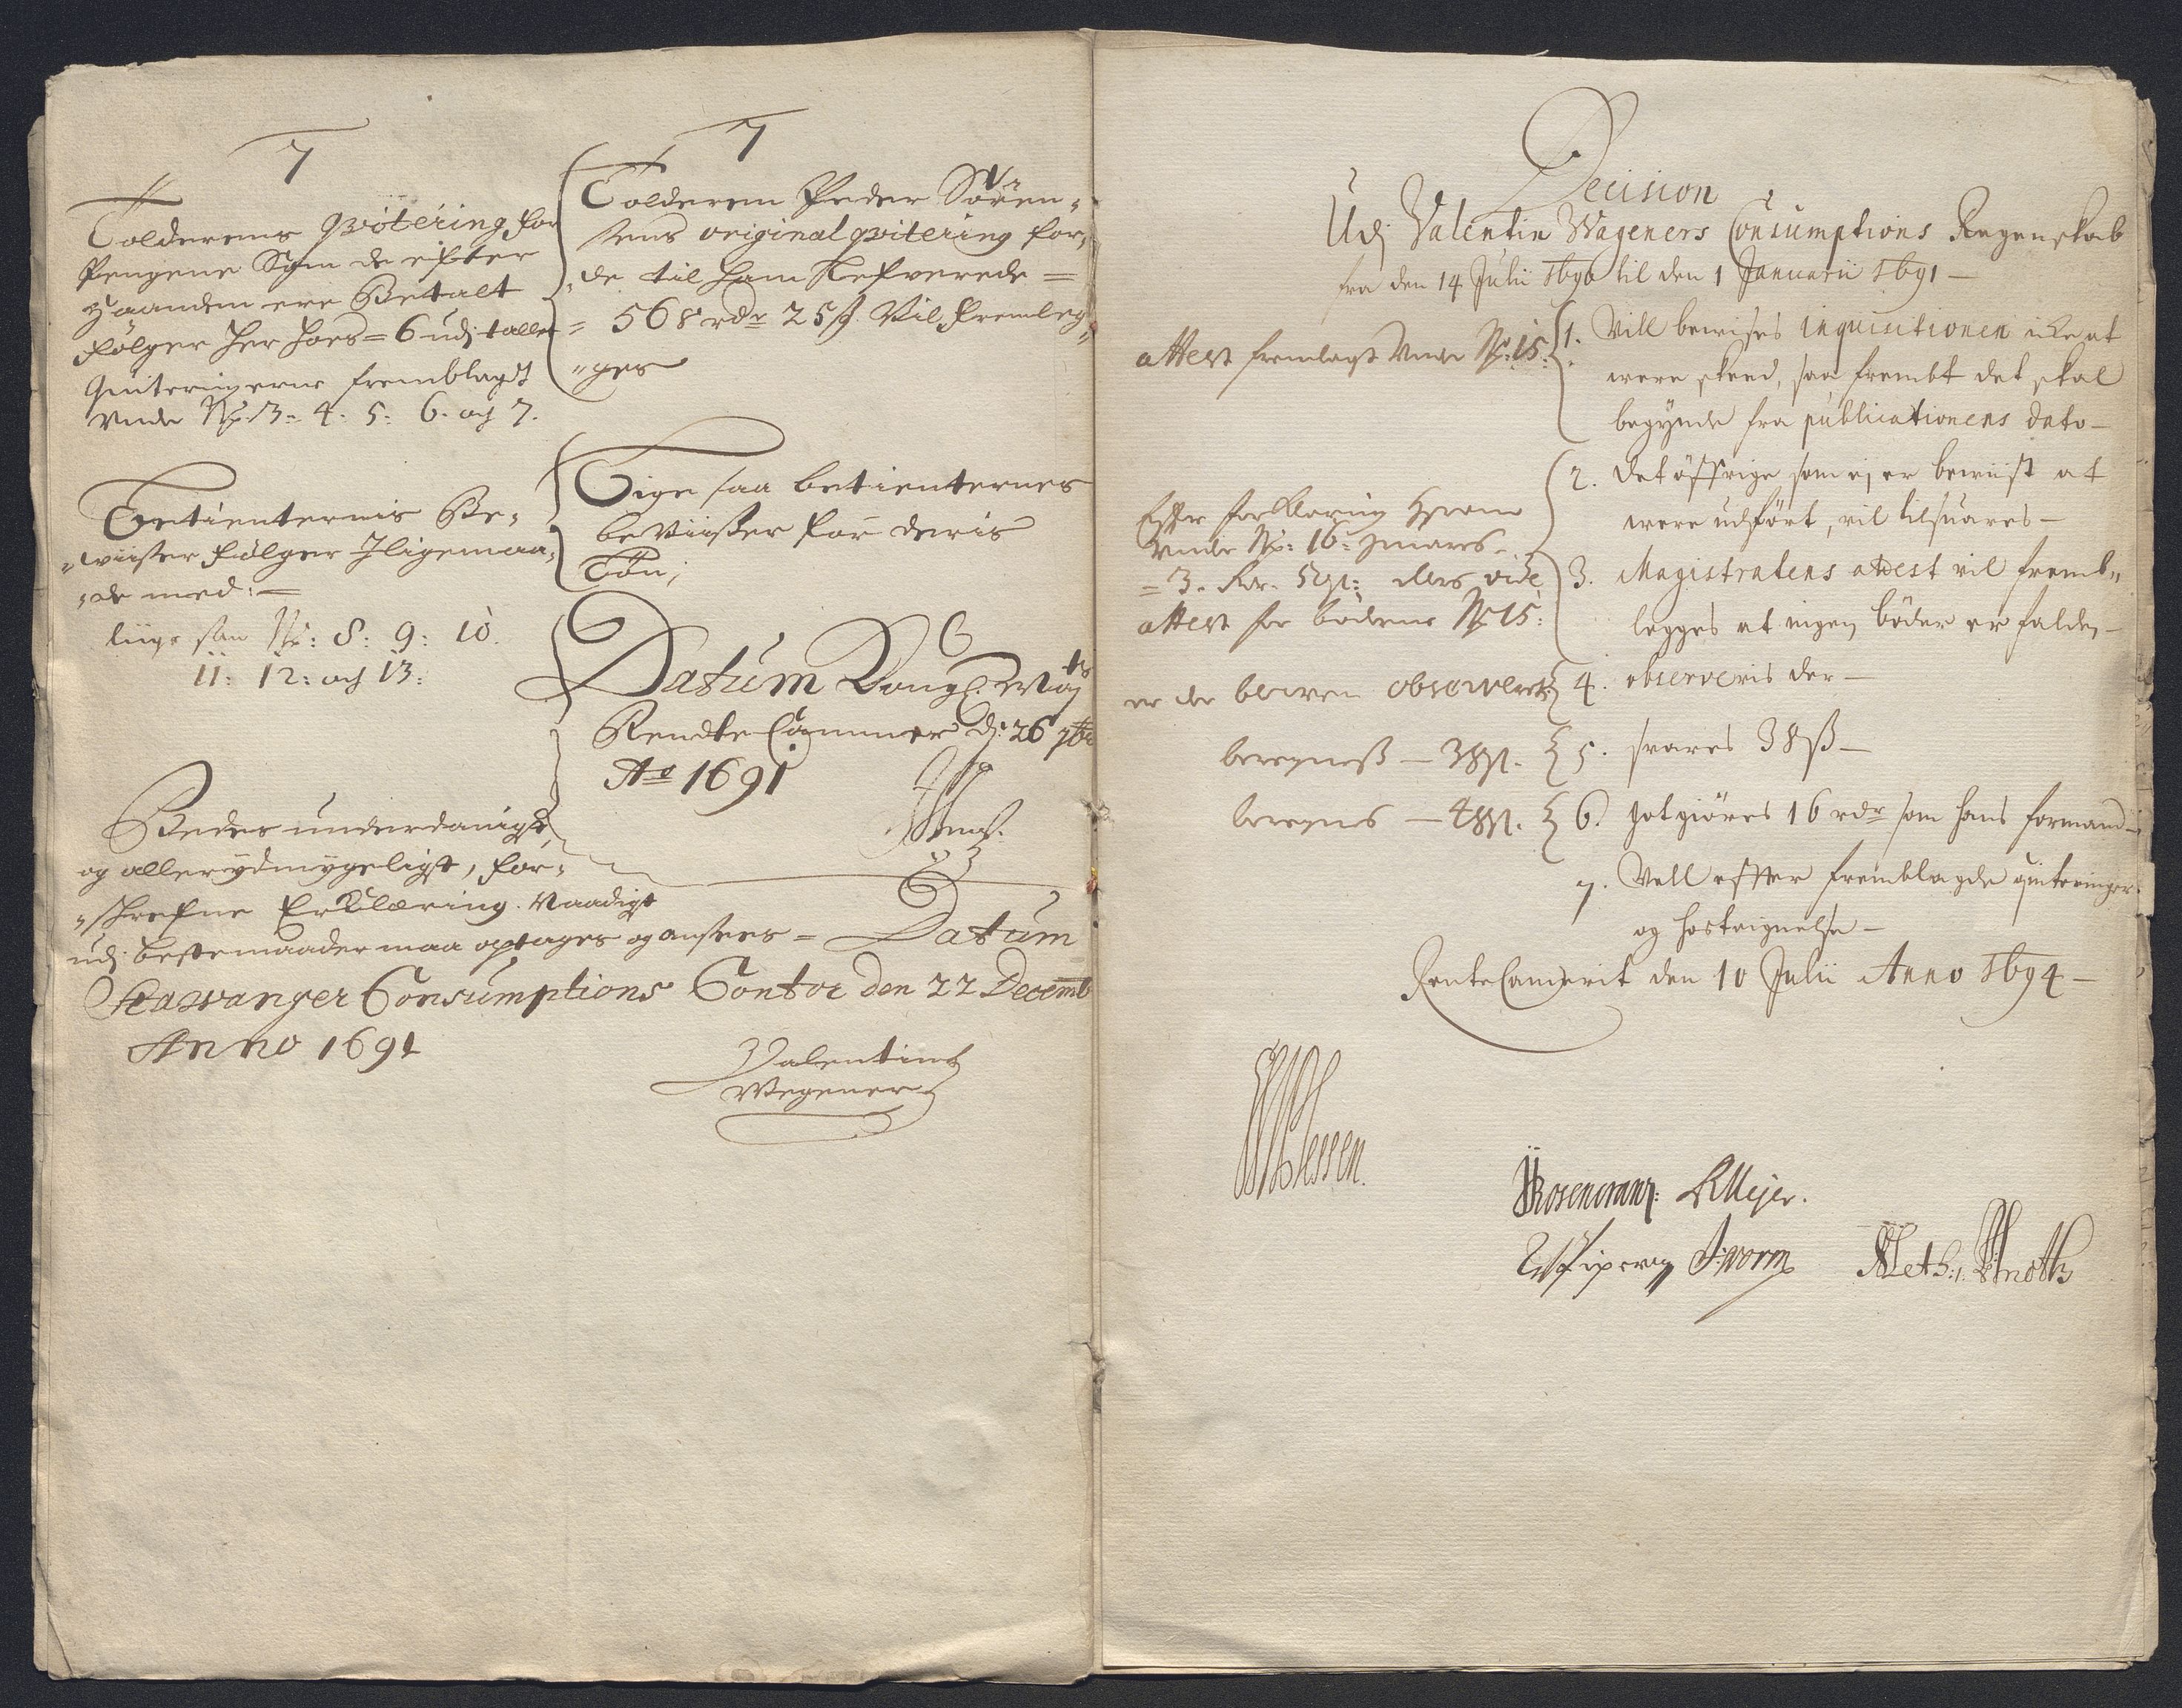 7
Tolderens qvitering for
Pengene Som de efter
Haanden ere Betalt
følger her hoes = 6 udj tallet
Quiteringerne fremblagdt
Under No. 3: 4: 5: 6. och 7.
Betienternis Be-
wiiser følger Jligemaa-
de med:
liige saa No: 8: 9: 10.
11: 12: och 13:
Bedes underdanigst
og allerydmygeligst, for-
schrefne Erklæring. Naadigst
udj bestemaader maa optages og ansees = Datum
Stawanger Consumptions Contor den 22 Decemb
Anno 1691
Valentin
Wegener
7
Tolderen Peder Sören-
sens original qvitering for,
de til ham Lefverede =
= 568 rdr 25 s. Vil fremleg-
ges
Lige saa betienternes
beViisser for deris
Løn;
Datum Kongl. Maj ts
Rendte Cammer dj: 26 9br
Ao 1691
Decision
Udj Valentin Wageners Consumptions Regenskab
fra den 14 Julii 1690 til den 1 Januarii 1691 –
attest fremlagt Under No: 15:
1. Vill bewises inquisitionen icke at
were skeed, saa frembt det skal
begynde fra publicationens dato –
Effter forklaring herom
under No: 16: svares
= 3. dr. 5 s: ders vide
attest for bøderne No 15:
2. det öffrige som ej er beviist at
were udført, vil tilsvares –
3. Magistratens attest vil fremb-
legges at ingen böder er falden –
er der bleven observeret
4. observeris der –
beregneß – 38 s.
5. svares 38 ß –
beregnes – 48 s.
6. gotgiöres 16 rdr som hans formand –
7. Vell effter fremblagde quiteringer
og hostegnelse –
RenteCamerit den 10 Julii Anno 1694 –
Plessen.
Rosencranz: Meyer.
Worm
Knoth